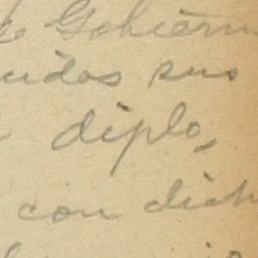 Gobiern
uidas sus
diplo,
con dich